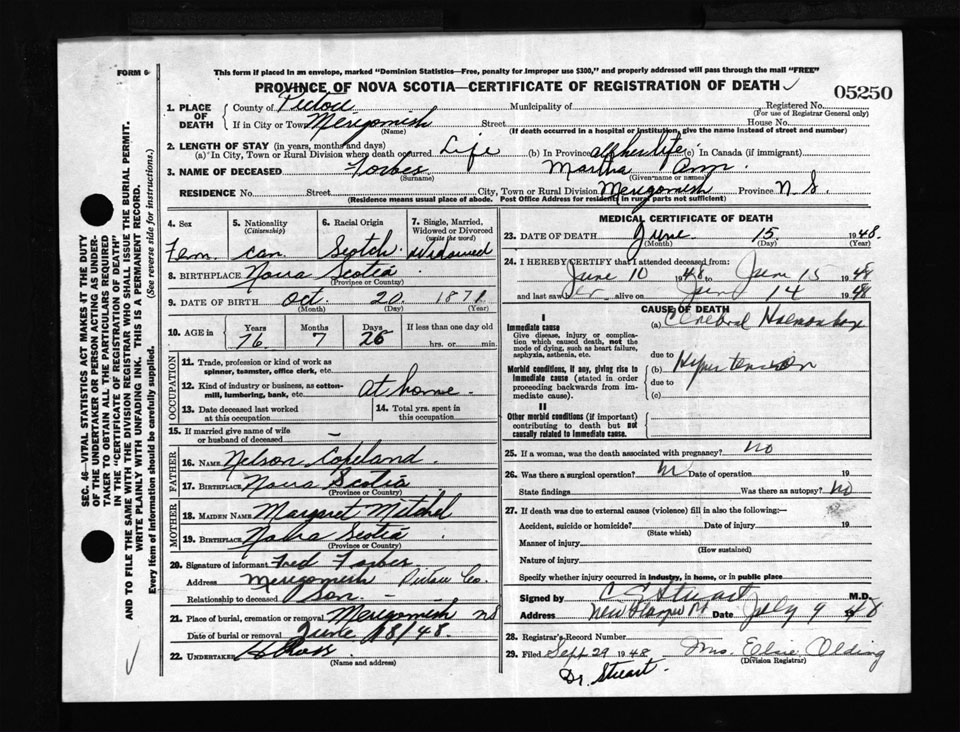 FORM 6
This form if placed in an envelope, marked "Dominion Statistics—Free, penalty for improper use $300," and properly addressed will pass through the mail "FREE"
PROVINCE OF NOVA SCOTIA—CERTIFICATE OF REGISTRATION OF DEATH
05250
1. PLACE OF DEATH County of Pictou Municipality of Registered No.
(For use of Registrar General only)
If in City or Town Merigomish Street House No.
(Name) (If death occurred in a hospital or institution, give the name instead of street and number)
2. LENGTH OF STAY (in years, months and days)
(a) In City, Town or Rural Division where death occurred Life (b) In Province all her life (c) In Canada (if immigrant)
3. NAME OF DECEASED Forbes Martha Ann
(Surname) (Given name or names)
RESIDENCE No. Street City, Town or Rural Division Merigomish Province N S.
(Residence means usual place of abode. Post Office Address for residents in rural parts not sufficient)
4. Sex 5. Nationality 6. Racial Origin 7. Single, Married, Widowed or Divorced
(Citizenship) (write the word)
Fem. can. Scotch Widowed
8. BIRTHPLACE Nova Scotia
(Province or Country)
9. DATE OF BIRTH Oct. 20. 1871
(Month) (Day) (Year)
10. AGE in Years Months Days If less than one day old
76 7 26 hrs. or min.
OCCUPATION
11. Trade, profession or kind of work as spinner, teamster, office clerk, etc.
12. Kind of industry or business, as cotton-mill, lumbering, bank, etc. At home.
13. Date deceased last worked at this occupation
14. Total yrs. spent in this occupation
15. If married give name of wife or husband of deceased —
FATHER
16. NAME Nelson Copeland
17. BIRTHPLACE Nova Scotia
(Province or Country)
MOTHER
18. MAIDEN NAME Margaret Mitchel
19. BIRTHPLACE Nova Scotia
(Province or Country)
20. Signature of informant Fred Forbes
Address Merigomish Pictou Co.
Relationship to deceased Son.
21. Place of burial, cremation or removal Merigomish NS
Date of burial or removal June 18/48.
22. UNDERTAKER
(Name and address)
MEDICAL CERTIFICATE OF DEATH
23. DATE OF DEATH June 15 1948.
(Month) (Day) (Year)
24. I HEREBY CERTIFY that I attended deceased from:
June 10 1948 to June 15 1948
and last saw her alive on June 14 1948
CAUSE OF DEATH
I
Immediate cause
Give disease, injury or complication which caused death, not the mode of dying, such as heart failure, asphyxia, asthenia, etc.
(a) Cerebral
due to
Morbid conditions, if any, giving rise to immediate cause (stated in order proceeding backwards from immediate cause).
(b) Hypertension
due to
(c)
II
Other morbid conditions (if important) contributing to death but not causally related to immediate cause.
25. If a woman, was the death associated with pregnancy? no
26. Was there a surgical operation? Date of operation 19
State findings Was there an autopsy? No
27. If death was due to external causes (violence) fill in also the following:—
Accident, suicide or homicide? Date of injury 19
(State which)
Manner of injury
(How sustained)
Nature of injury
Specify whether injury occurred in industry, in home, or in public place
Signed by Stuart M.D.
Address New Date July 9 1948
28. Registrar's Record Number
29. Filed Sept 29 1948 Mrs. Elsie Olding
(Division Registrar)
Dr. Stuart.
SEC. 46—VITAL STATISTICS ACT MAKES IT THE DUTY
OF THE UNDERTAKER OR PERSON ACTING AS UNDERTAKER TO OBTAIN ALL THE PARTICULARS REQUIRED
IN THE "CERTIFICATE OF REGISTRATION OF DEATH"
AND TO FILE THE SAME WITH THE DIVISION REGISTRAR WHO SHALL ISSUE THE BURIAL PERMIT.
WRITE PLAINLY WITH UNFADING INK. THIS IS A PERMANENT RECORD.
Every item of information should be carefully supplied. (See reverse side for instructions.)